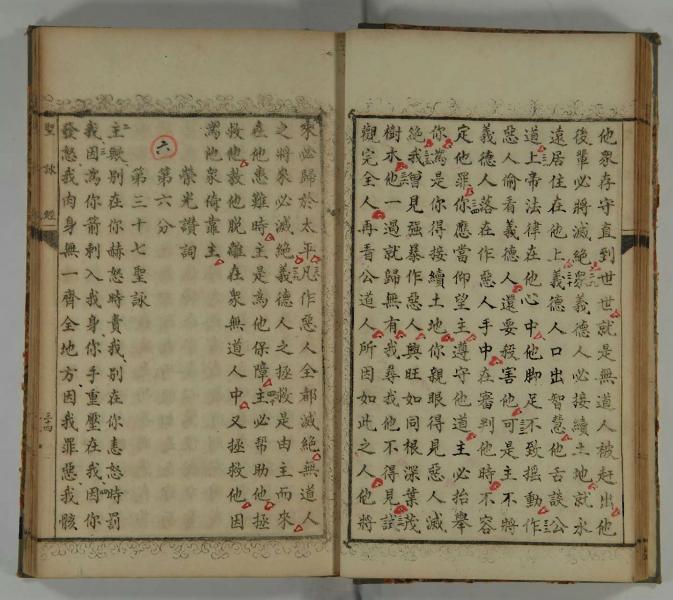 他衆存守直到世世就是無道人被赶出他
後輩必將滅絶衆義德人必接續土地就永
遠居住在他上義德人口出智慧他舌談公
道上帝法律在他心中他脚足不致揺動作
惡人偷看義德人還要殺害他可是主不將
義德人落在作惡人手中在審判他時不容
定他罪你應當仰望主遵守他道主必抬舉
你爲是你得接續土地你親眼得見惡人滅
絶我曾見强暴作惡人興旺如同根深葉茂
樹木他一過就歸無有我尋我他不得見試
觀完全人再看公道人所因如此之人他將
來必歸於太平凡作惡人全都滅絶無道人
之將來必滅絶義德人之拯救是由主而來
在他患難時主是爲他保障主必帮助他拯
救他救他脱離在衆無道人中又拯救他因
爲他衆倚靠主
榮光讚詞
六
第六分
第三十七聖詠
主歟别在你赫怒時責我别在你恚怒時罰
我因爲你箭刺入我身你手重壓在我因你
發怒我肉身無一齊全地方因我罪惡我骸
聖詠經
三十四